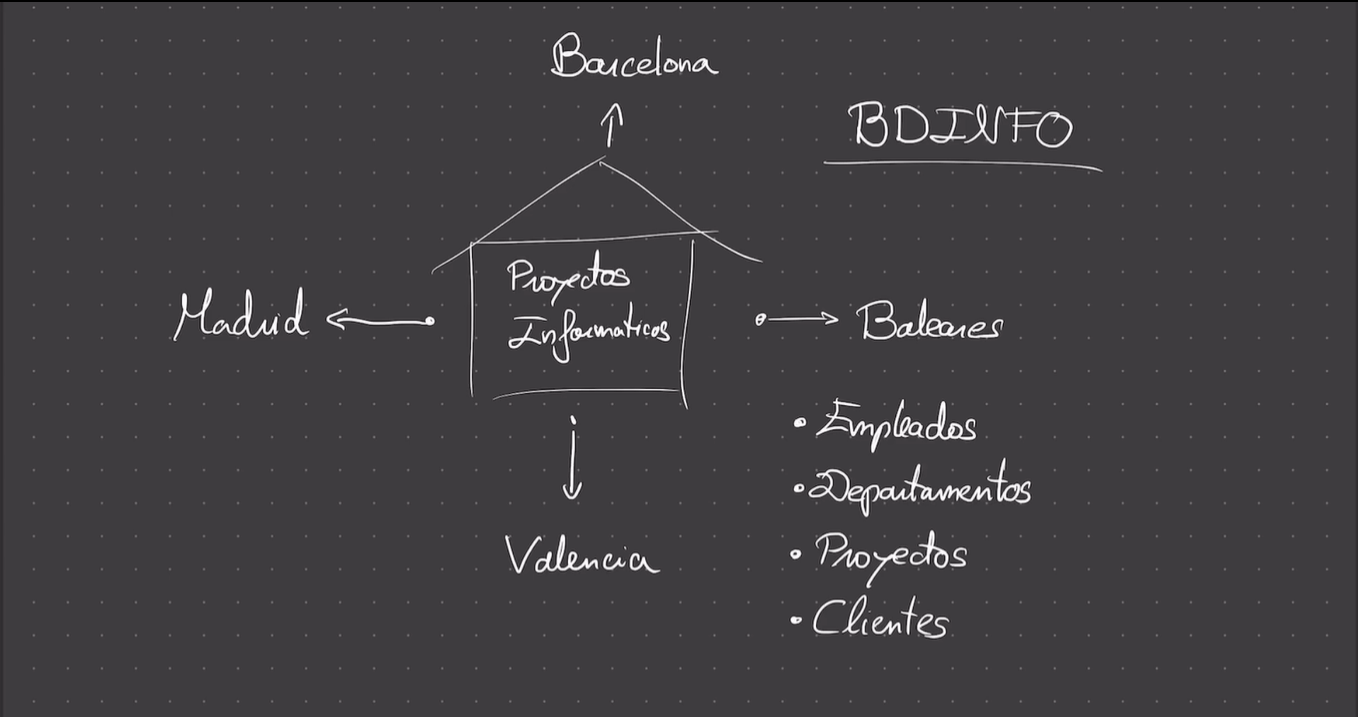 Barcelona
BDINFO
Proyectos
Informaticos
Madrid
Baleares
Empleados
Departamentos
Proyectos
Clientes
Valencia